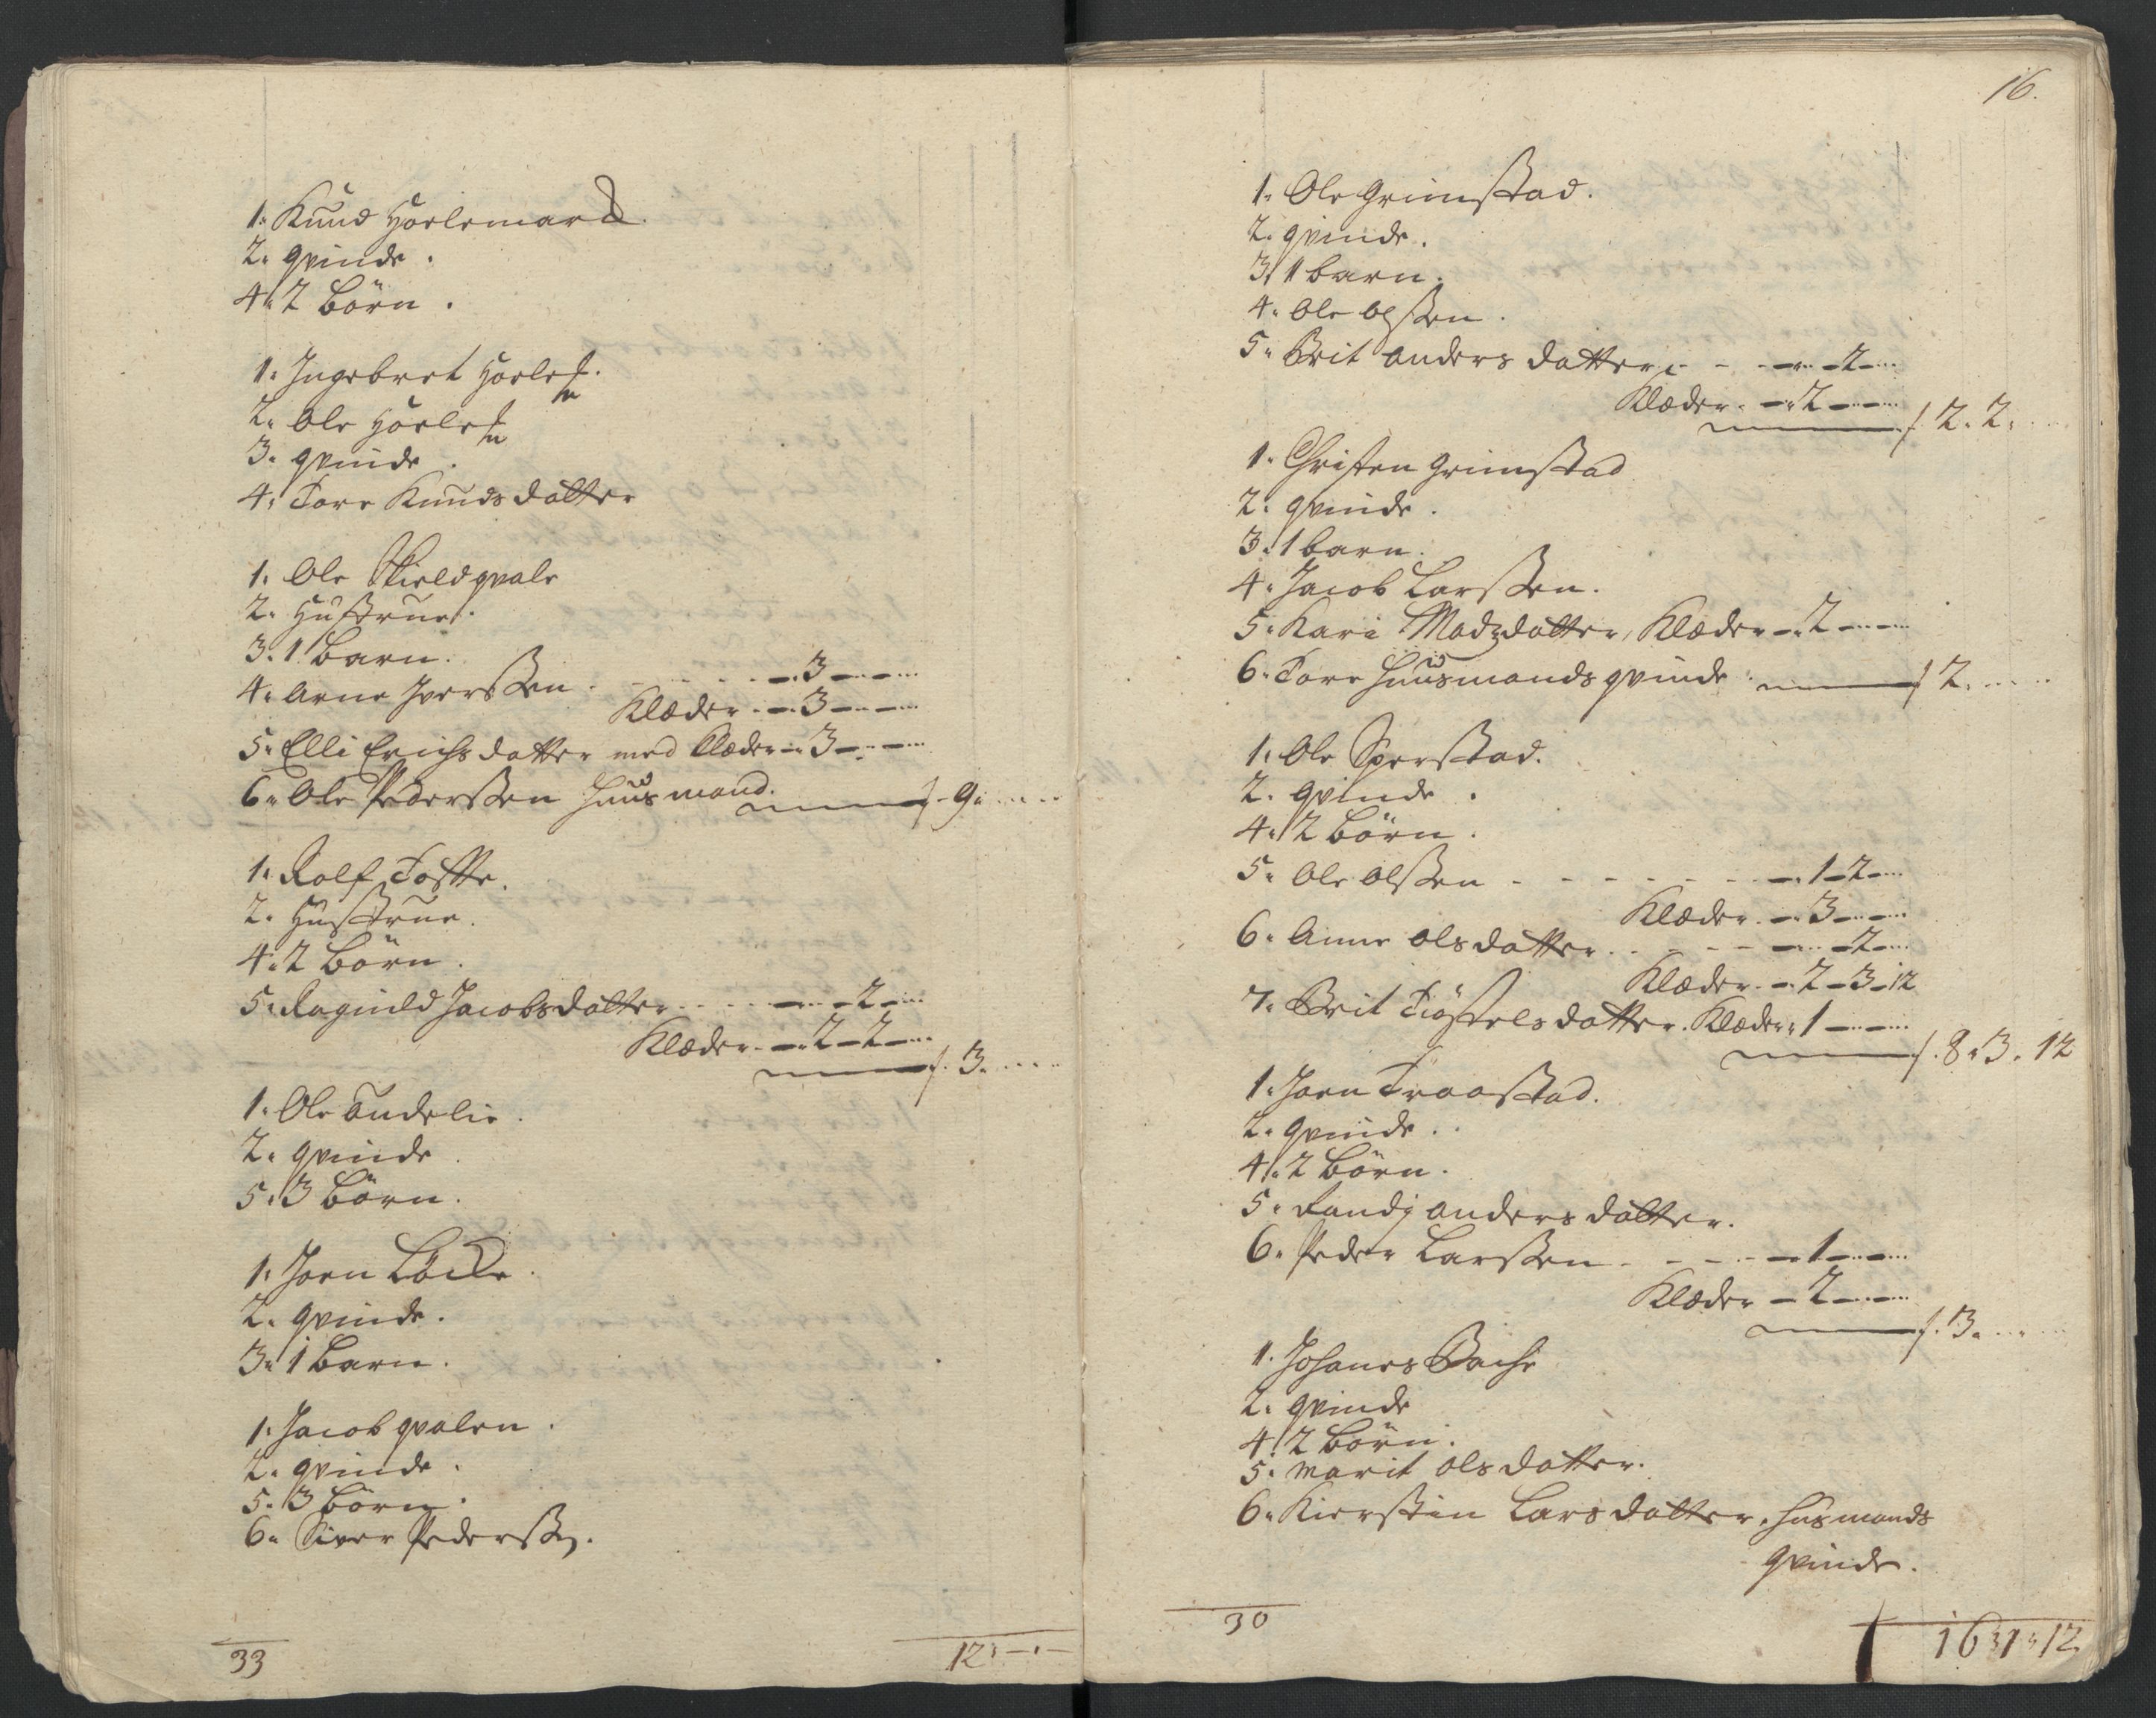 1. Knud Hoelemark.
2. qvinde.
4. 2 Börn.
1. Ingebret Hoelem
2. Ole Hoelem
3. qvinde.
4. Tore Knuds datter
1. Ole Skieldqvale
2. Hustrue.
3. 1 Barn.
4. Arne Iverssen - - - 3 - -
Klæder - 3 - -
5. Elli Erichs datter med Klæder - 3 - -
6. Ole Pederssen Huusmand. f. 9. - -
1. Rolf Tofte.
2. Hustrue.
4. 2 Börn.
5. Ragnild Jacobs datter - - 2 -
Klæder - 2 - 2 -
f. 3. - -
1. Ole Undelie.
2. qvinde
5. 3 Börn.
1. Joen Löcke.
2. qvinde.
3. 1 Barn.
1. Jacob qvalen.
2. qvinde.
5. 3 Börn.
6. Siver Pederss.
33
12 " - " -
16.
1. Ole Grimstad.
2. qvinde.
3. 1 barn.
4. Ole Olssen.
5. Brit Anders datter - - - 2 -
Klæder - 2 - -
f 2. 2. -
1. Christen Grimstad
2. qvinde.
3. 1 barn.
4. Jacob Larssen.
5. Kari Madzdatter, Klæder - 2 - -
6. Tore Huusmands qvinde f 2. - -
1. Ole Sperstad.
2. qvinde.
4. 2 Börn.
5. Ole Olssen - - - - 1 - 2 -
Klæder - 3 - -
6. Anne Ols datter - - - 2 -
Klæder - 2 - 3 - 12
7. Brit Tiöstels datter. Klæder 1 - -
f. 8. 3. 12
1. Joen Traastad.
2. qvinde.
4. 2 Börn.
5. Randj Anders datter.
6. Peder Larssen - - - 1 - -
Klæder - 2 - -
f. 3. - -
1. Johanes Bache
2. qvinde
4. 2 Börn.
5. Marit Ols datter.
6. Kierstin Lars datter, Husmands
qvinde.
30
16 " 1 " 12